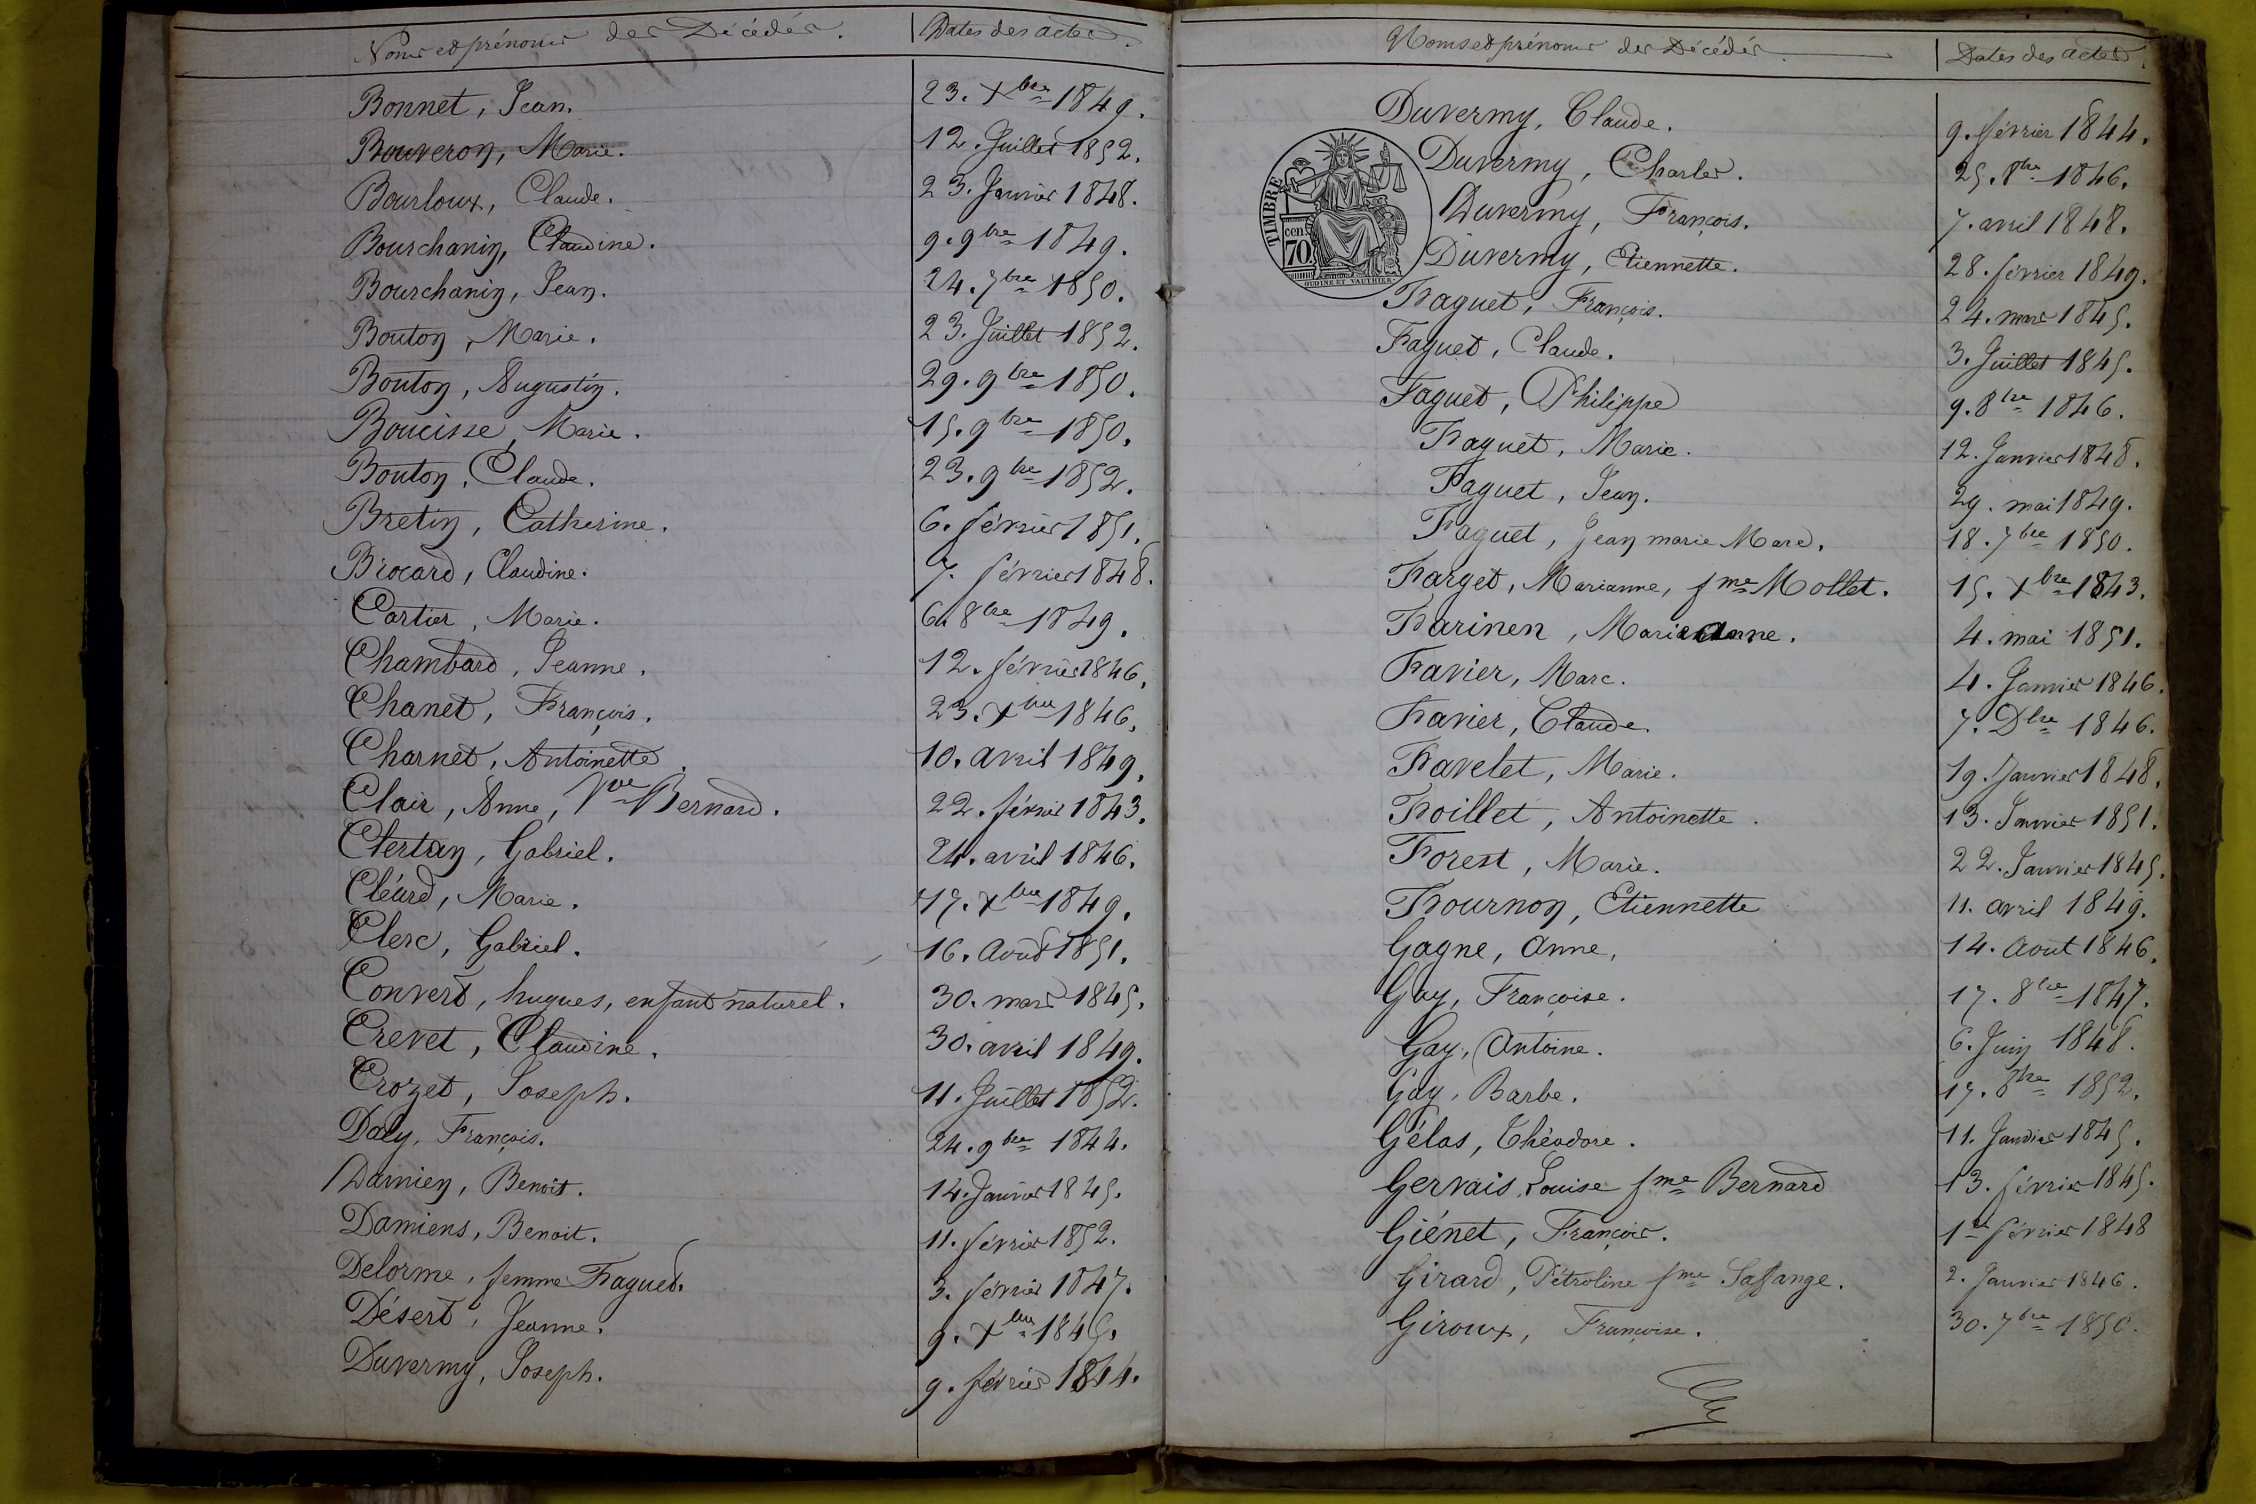 Noms et prénoms des Décédés. Dates des actes.
Bonnet, Jean. 23. Xbre 1849.
Bouveron, Marie. 12. Juillet 1852.
Bourloux, Claude. 23. Janvier 1848.
Bourchanin, Claudine. 9. 9bre 1849.
Bourchanin, Jean. 24. 7bre 1850.
Bouton, Marie. 23. Juillet 1852.
Bouton, Augustin. 29. 9bre 1850.
Boucisse, Marie. 15. 9bre 1850.
Bouton, Claude. 23. 9bre 1852.
Bretin, Catherine. 6. février 1851.
Brocard, Claudine. 7. février 1848.
Cartier, Marie. 6. 8bre 1849.
Chambard, Jeanne. 12. février 1846.
Chanet, François. 23. Xbre 1846.
Charnet, Antoinette. 10. avril 1849.
Clair, Anne, Vve Bernard. 22. février 1843.
Clertan, Gabriel. 24. avril 1846.
Cléard, Marie. 17. Xbre 1849.
Clerc, Gabriel. 16. Aout 1851.
Convert, hugues, enfant naturel. 30. mars 1845.
Crevet, Claudine. 30. avril 1849.
Crozet, Joseph. 11. Juillet 1852.
Daly, François. 24. 9bre 1844.
Damien, Benoit. 14. Janvier 1845.
Damiens, Benoit. 11. février 1852.
Delorme, femme Faguet. 3. février 1847.
Désert, Jeanne. 9. Xbre
Duvermy, Joseph. 9. février 1844.
Noms et prénoms des Décédés. Dates des actes.
Duvermy, Claude. 9. février 1844.
Duvermy, Charles. 25. 8bre 1846.
Duvermy, François. 7. avril 1848.
Duvermy, Etiennette. 28. février 1849.
TIMBRE
cen. 70
OUDINÉ ET VAUTHIER
Faguet, François. 24. mars 1845.
Faguet, Claude. 3. Juillet 1845.
Faguet, Philippe 9. 8bre 1846.
Faguet, Marie. 12. Janvier 1848.
Faguet, Jean. 29. mai 1849.
Faguet, Jean marie Marc. 18. 7bre 1850.
Farget, Marianne, fme Mollet. 15. Xbre 1843.
Farinen, Marie anne. 4. mai 1851.
Favier, Marc. 4. Janvier 1846.
Favier, Claude. 7. Dbre 1846.
Favelet, Marie. 19. Janvier 1848.
Foillet, Antoinette. 13. Janvier 1851.
Forest, Marie. 22. Janvier 1845.
Fournon, Etiennette 11. avril 1849.
Gagne, Anne, 14. Aout 1846.
Gay, Françoise. 17. 8bre 1847.
Gay, Antoine. 6. Juin 1848.
Gay, Barbe. 17. 8bre 1852.
Gélas, Théodore. 11. Janvier 1845.
Gervais, Louise fme Bernard 13. février 1845.
Giénet, François. 1er février 1848
Girard, Pétroline fme Laffange. 2. Janvier 1846.
Giroux, Françoise. 30. 7bre 1850.